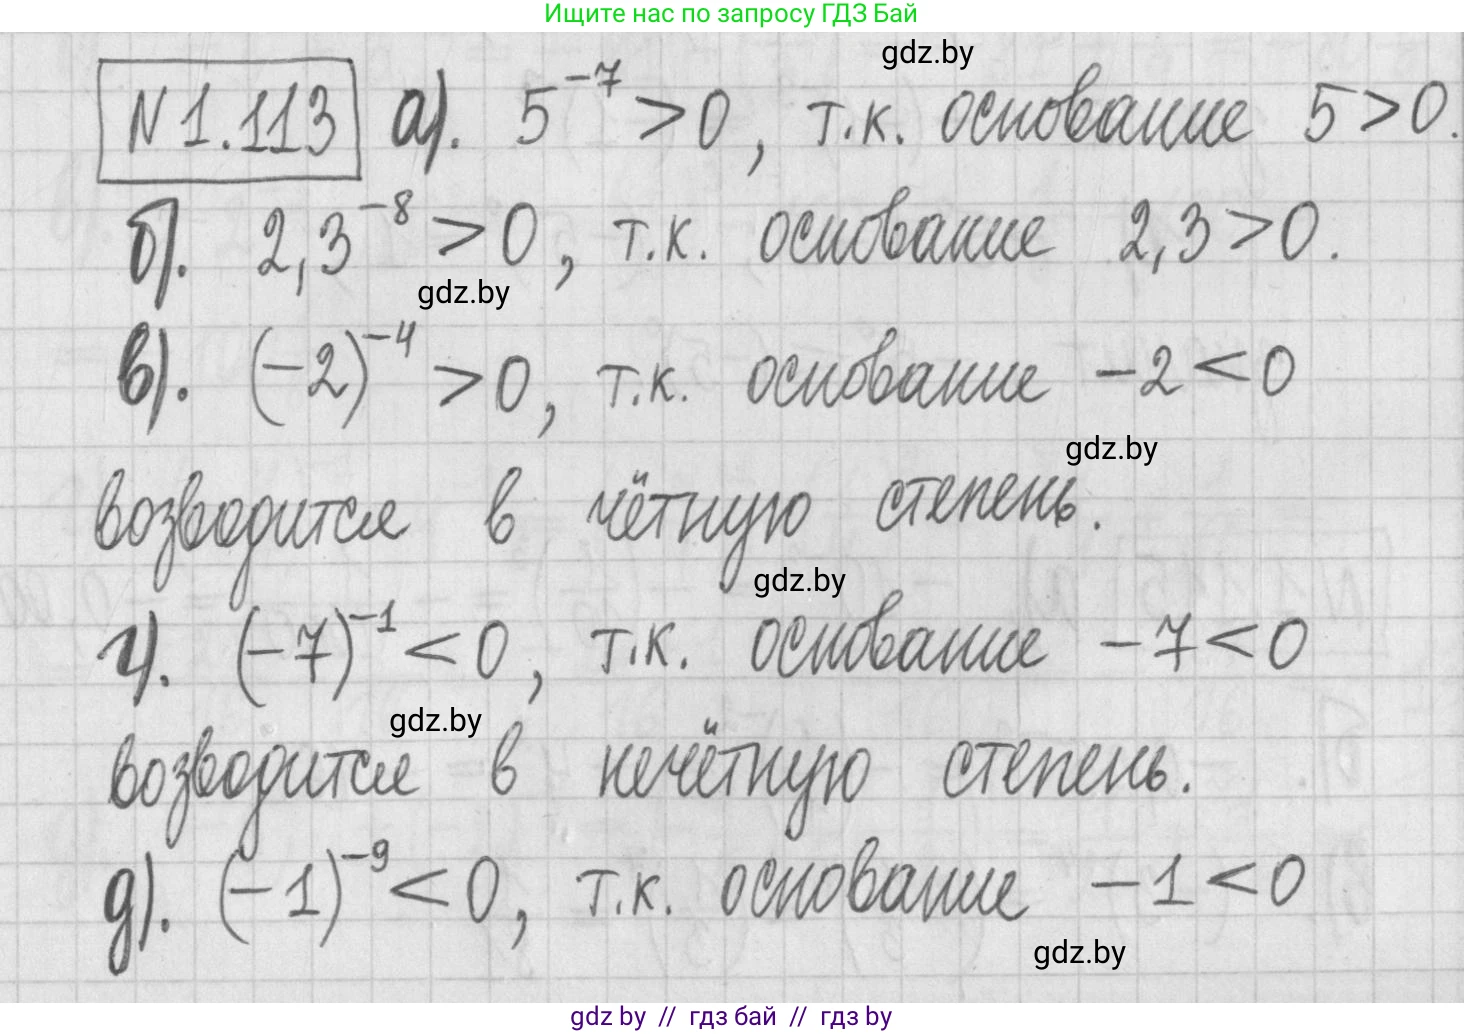 Ищите нас по запросу ГДЗ Бай
gdz.by
№1.113 а). 5^-7 > 0, т.к. основание 5 > 0.
б). 2,3^-8 > 0, т.к. основание 2,3 > 0.
gdz.by
в). (-2)^-4 > 0, т.к. основание -2 < 0
gdz.by
возводится в чётную степень.
gdz.by
г). (-7)^-1 < 0, т.к. основание -7 < 0
gdz.by
возводится в нечётную степень.
д). (-1)^-9 < 0, т.к. основание -1 < 0
gdz.by
gdz by // гдз бай // гдз by